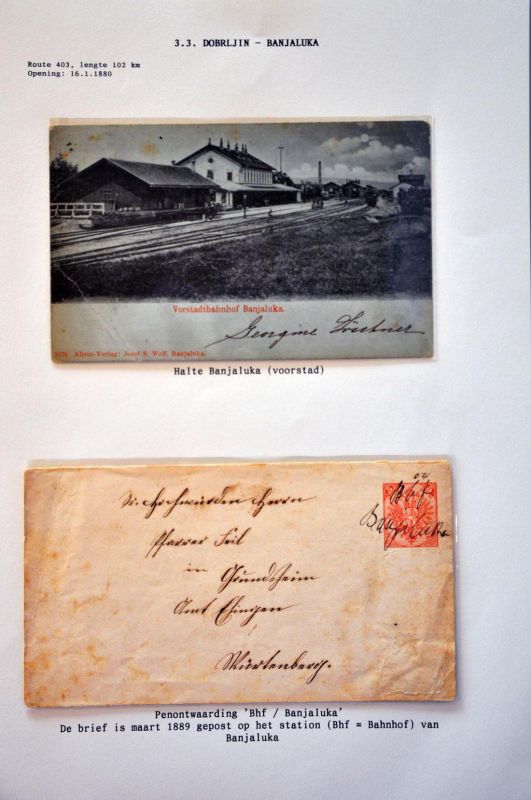 3.3. DOBRLJIN - BANJALUKA
Route 403, lengte 102 km
Opening: 16.1.1880
Vorstadtbahnhof Banjaluka.
Georgine
Allein-Verlag: Josef S. Wolf, Banjaluka.
Halte Banjaluka (voorstad)
Bhf
Banjaluka
Sr. Hochwürden Herrn
Pfarrer Teil
in Grundsheim
Amt Ehingen
Würtenberg.
Penontwaarding 'Bhf / Banjaluka'
De brief is maart 1889 gepost op het station (Bhf = Bahnhof) van
Banjaluka